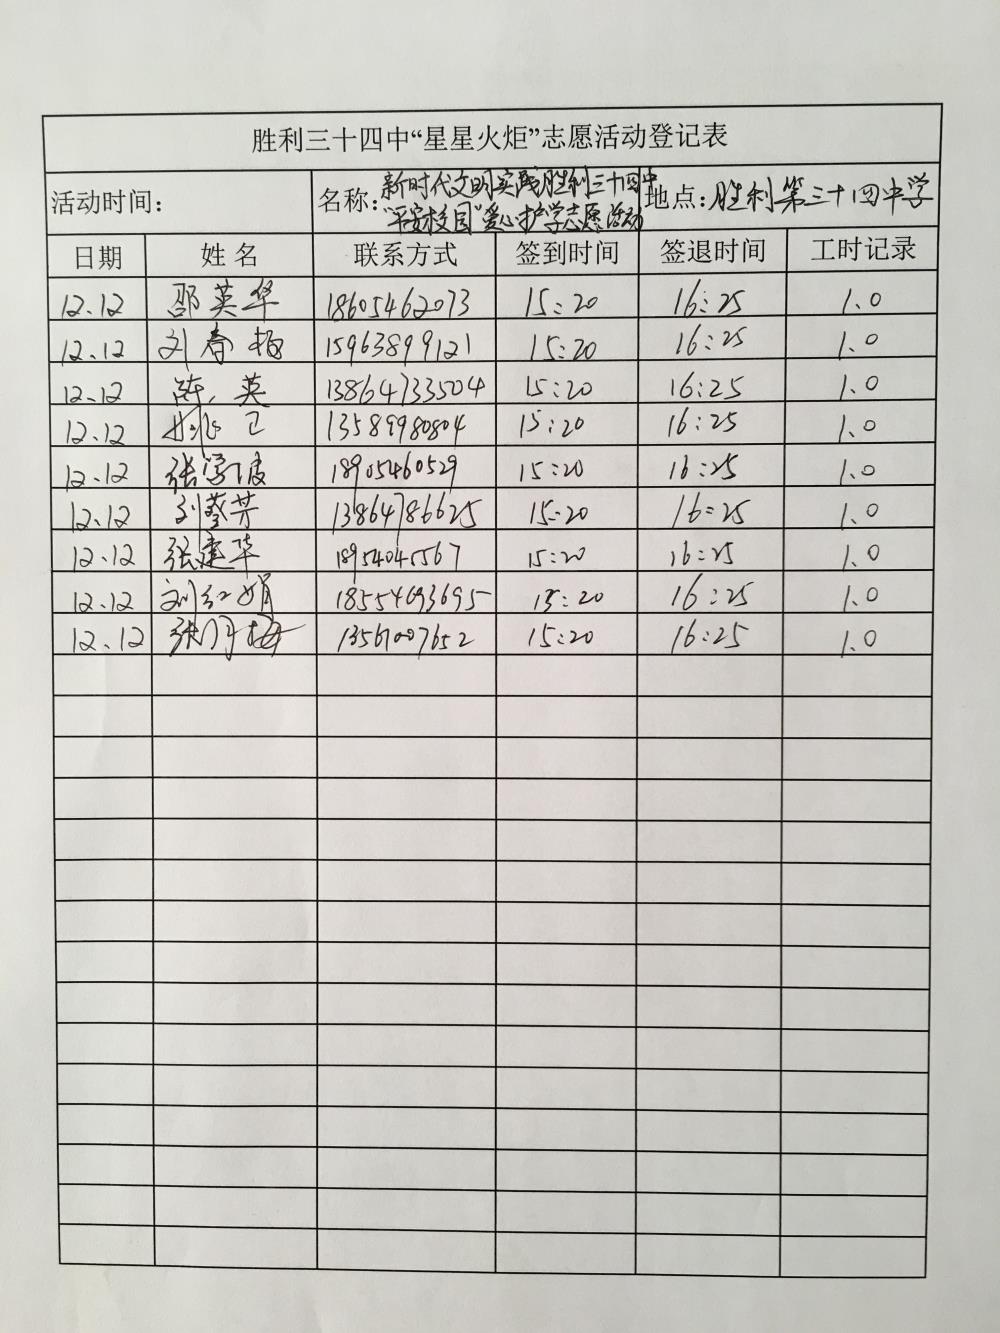 胜利三十四中“星星火炬”志愿活动登记表
活动时间： 名称：新时代文明实践胜利三十四中 地点：胜利第三十四中学
“平安校园”爱心护学志愿活动
日期 姓名 联系方式 签到时间 签退时间 工时记录
12.12 邵英华 18605462073 15:20 16:25 1.0
12.12 刘春梅 15963899121 15:20 16:25 1.0
12.12 陈英 13864733504 15:20 16:25 1.0
12.12 姚卫 13589980804 15:20 16:25 1.0
12.12 张学波 18905460529 15:20 16:25 1.0
12.12 刘蔡芳 13864786625 15:20 16:25 1.0
12.12 张建华 18954045567 15:20 16:25 1.0
12.12 刘红娟 18554693695 15:20 16:25 1.0
12.12 张月梅 13561007652 15:20 16:25 1.0